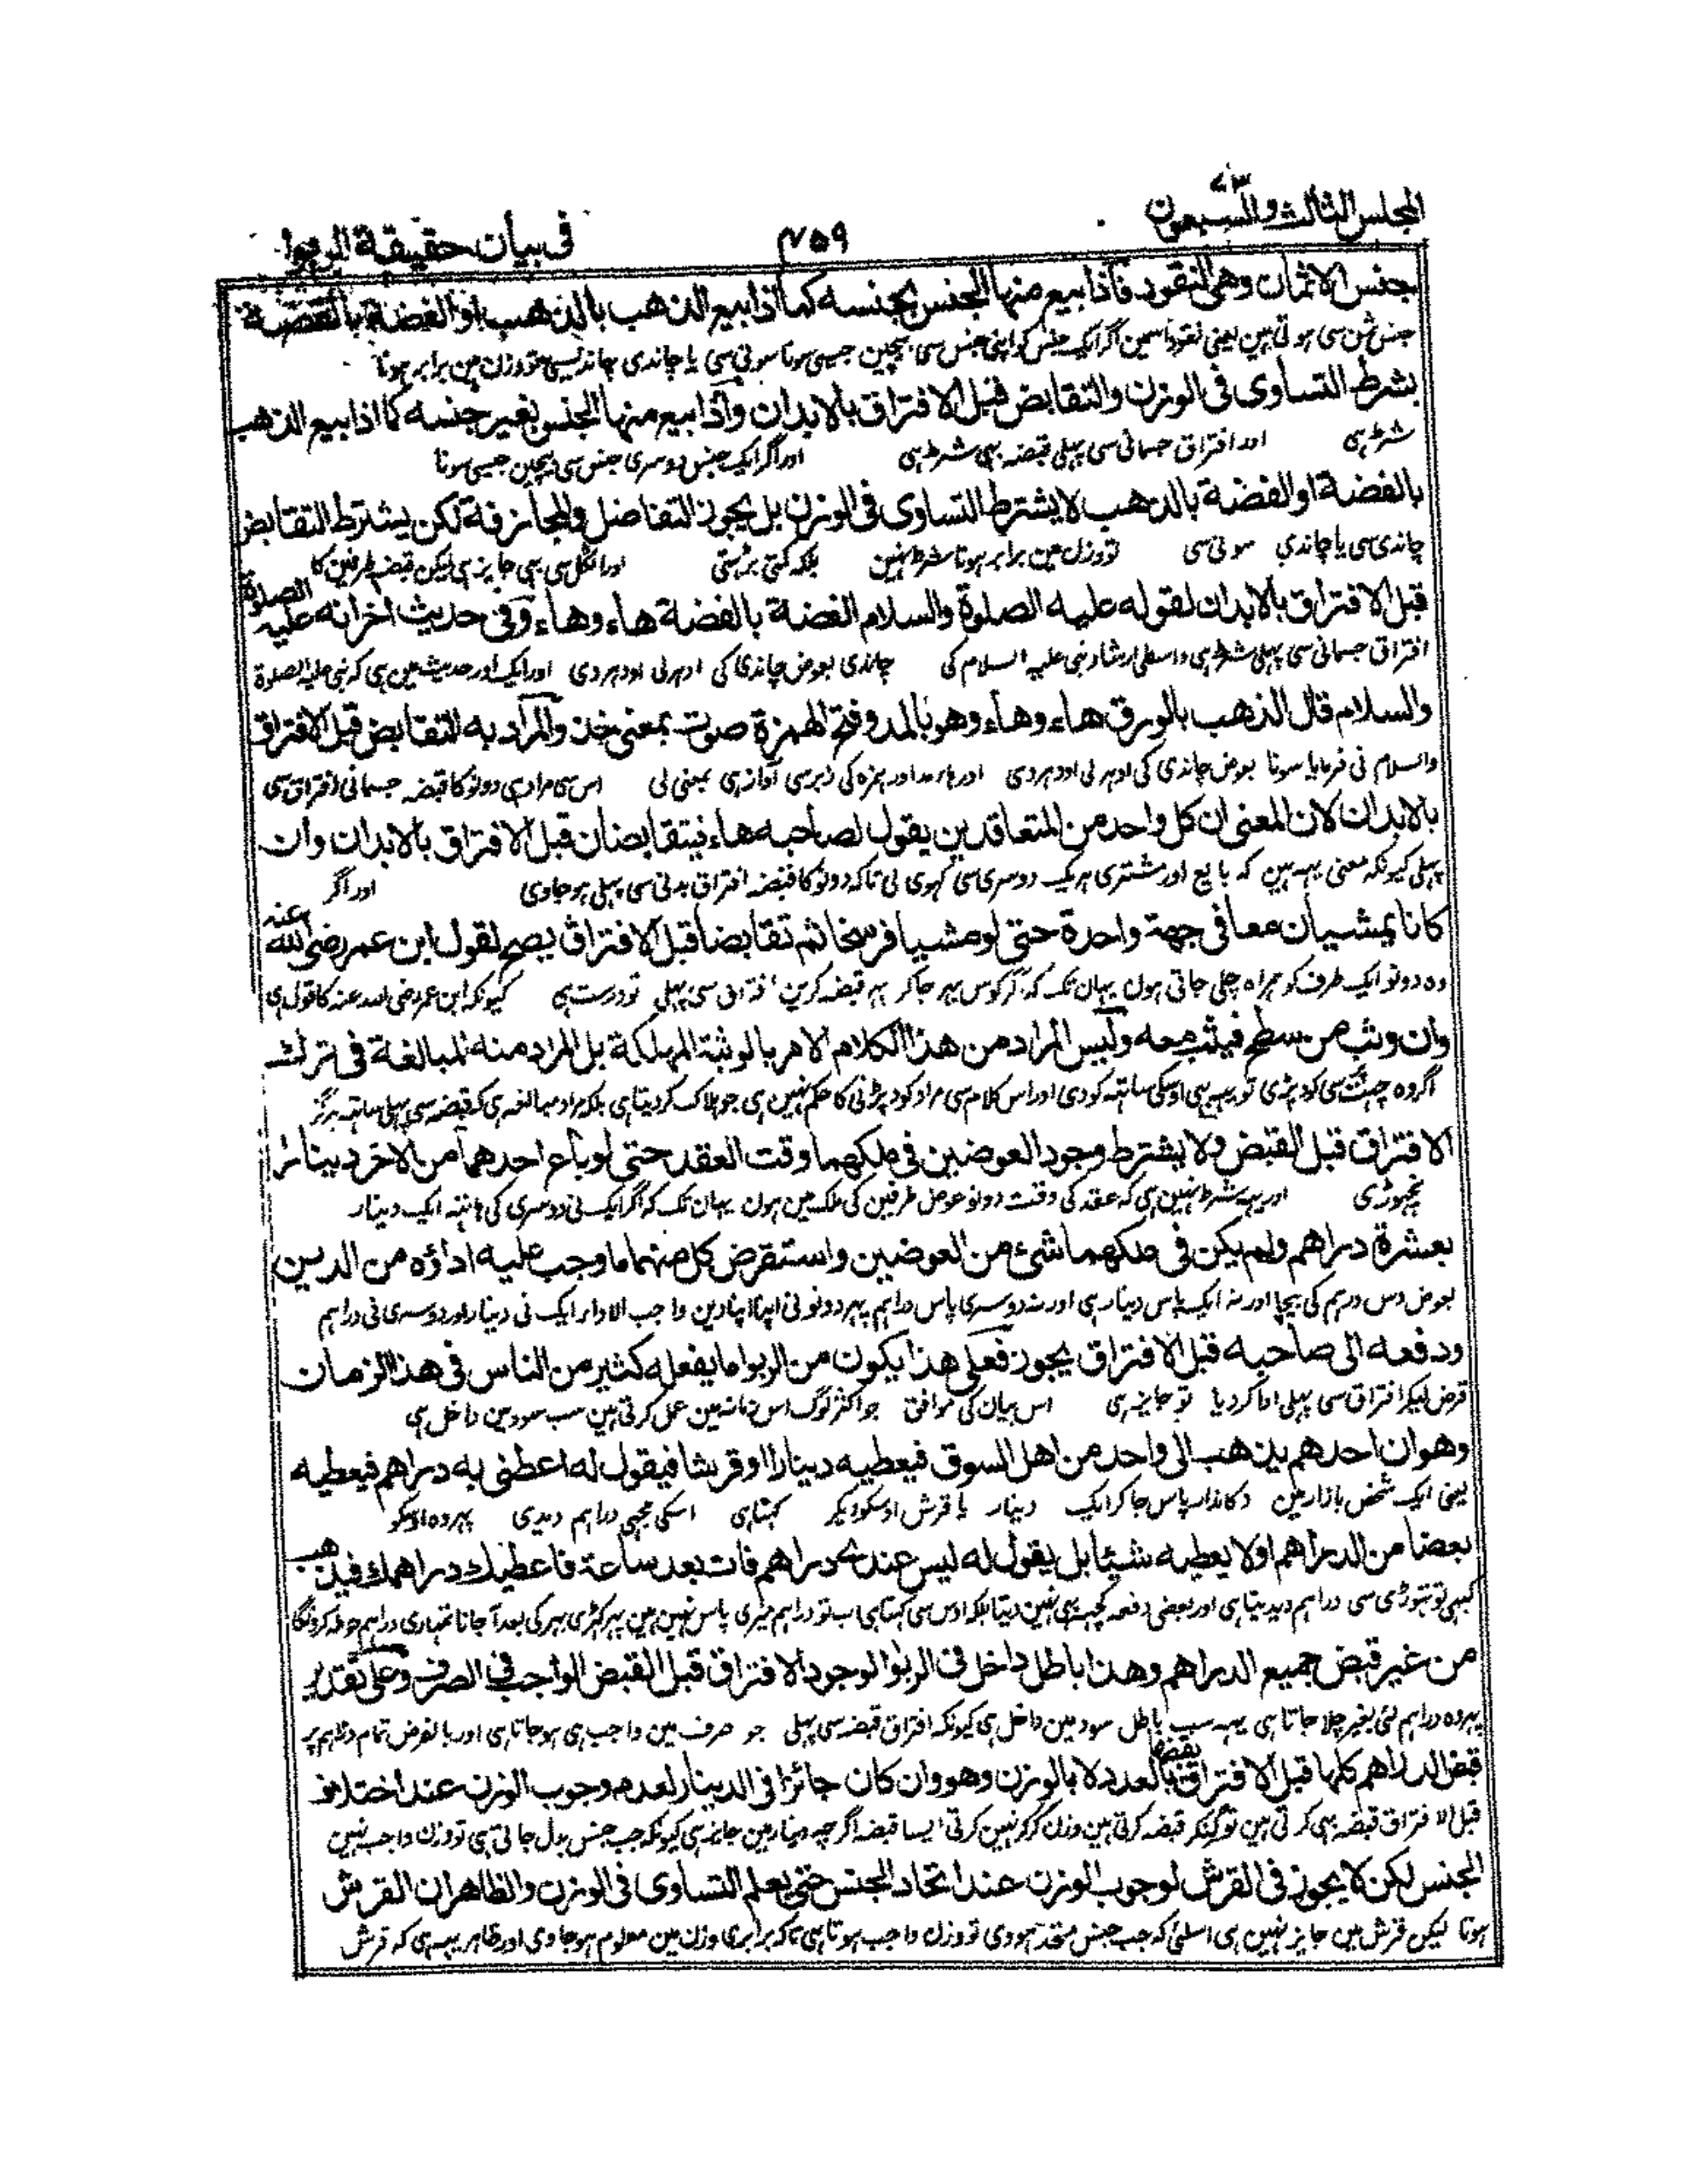 المجلس الثالث والسبعون ٧٣
٤٥٩
فى بيان حقيقة الربوا
جنس الاثمان وهى النقود فاذا بيع منها الجنس بجنسه كما اذا بيع الذهب بالذهب او الفضة بالفضة
جنس ثمن سى ہوتی ہین یعنی نقود اسمین اگر ایک جنس کو اپنی جنس سی بیچین جیسی سونا سونی سی یا چاندی چاندیسی تو وزن مین برابر ہونا
بشرط التساوى فى الوزن والتقابض قبل الافتراق بالابدان واذا بيع منها الجنس بغير جنسه كما اذا بيع الذهب
شرط ہی اور افتراق جسمانی سی پہلی قبضہ بھی شرط ہی اور اگر ایک جنس دوسری جنس سی بیچین جیسی سونا
بالفضة او الفضة بالذهب لا يشترط التساوى فى الوزن بل يجوز التفاضل والمجازفة لكن يشترط التقابض
چاندی سی یا چاندی سونی سی تو وزن مین برابر ہونا شرط نہین بلکہ کمتی بڑہتی اور اٹکل سی بھی جایز ہی لیکن قبضہ طرفین کا
قبل الافتراق بالابدان لقوله عليه الصلوة والسلام الفضة بالفضة هاء وهاء وفى حديث اخر انه عليه الصلوة
افتراق جسمانی سی پہلی شرط ہی واسطی ارشاد نبی علیہ السلام کی چاندی بعوض چاندی کی ادہر لی اودہر دی اور ایک اور حدیث مین ہی کہ نبی علیہ الصلوة
والسلام قال الذهب بالورق هاء وهاء وهو بالمد وفتح الهمزة صوت بمعنى خذ والمراد به التقابض قبل الافتراق
والسلام نی فرمایا سونا بعوض چاندی کی ادہر لی اودہر دی اور ہاء مد اور ہمزہ کی زبر سی آواز ہی بمعنی لی اس سی مراد ہی دونو کا قبضہ جسمانی افتراق سی
بالابدان لان المعنى ان كل واحد من المتعاقدين يقول لصاحبه هاء فيتقابضان قبل الافتراق بالابدان وان
پہلی کیونکہ معنی یہہ ہین کہ بایع اور مشتری ہر یک دوسری سی کہوی لی تاکہ دونو کا قبضہ افتراق بدنی سی پہلی ہو جاوی اور اگر
كانا يمشيان معا فى جهة واحدة حتى لو مشيا فرسخا ثم تقابضا قبل الافتراق يصح لقول ابن عمر رضى الله عنه
وہ دونو ایک طرف کو ہمراہ چلی جاتی ہون یہان تک کہ اگر کوس بہر جا کر پہر قبضہ کرین افتراق سی پہلی تو درست ہی کیونکہ ابن عمر رضی اللہ عنہ کا قول ہی
وان وثب من سطح فيثب معه وليس المراد من هذا الكلام الامر بالوثبة المهلكة بل المراد منه المبالغة فى ترك
اگر وہ چہت سی کود پڑی تو یہہ بہی اوسکی ساتہہ کودی اور اس کلام سی مراد کود پڑنی کا حکم نہین ہی جو ہلاک کر دیتا ہی بلکہ مراد مبالغہ ہی کہ قبضہ سی پہلی ساتہہ ہرگز
الافتراق قبل القبض ولا يشترط وجود العوضين فى ملكهما وقت العقد حتى لو باع احدهما من الاخر دينارا
نچہوڑی اور یہہ شرط نہین ہی کہ عقد کی وقت دونو عوض طرفین کی ملک مین ہون یہان تک کہ اگر ایک نی دوسری کی ہاتہہ ایک دینار
بعشرة دراهم ولم يكن فى ملكهما شئ من العوضين واستقرض كل منهما ما وجب عليه اداؤه من الدين
بعوض دس درہم کی بیچا اور نہ ایک پاس دینار ہی اور نہ دوسری پاس دراہم پہر دونو نی اپنا اپنا دین واجب الادا ایک نی دینار اور دوسری نی دراہم
ودفعه الى صاحبه قبل الافتراق يجوز فعلى هذا يكون من الربوا ما يفعله كثير من الناس فى هذا الزمان
قرض لیکر افتراق سی پہلی ادا کر دیا تو جایز ہی اس بیان کی موافق جو اکثر لوگ اس زمانہ مین عمل کرتی ہین سب سود مین داخل ہی
وهو ان احدهم يذهب الى واحد من اهل السوق فيعطيه دينارا او قرشا فيقول له اعطنى به دراهم فيعطيه
یعنی ایک شخص بازار مین دکاندار پاس جا کر ایک دینار یا قرش اوسکو دیکر کہتا ہی اسکی مجہی دراہم دیدی پہر وہ اوسکو
بعضا من الدراهم او لا يعطيه شيئا بل يقول له ليس عندى دراهم فات بعد ساعة فاعطيك دراهمك فيذهب
کبہی تو تہوڑی سی دراہم دیدیتا ہی اور بعضی دفعہ کچہہ بہی نہین دیتا بلکہ اوس سی کہتا ہی اب تو دراہم میری پاس نہین ہین پہر گہڑی بہر کی بعد آ جانا تمہاری دراہم حوالہ کرونگا
من غير قبض جميع الدراهم وهذا باطل داخل فى الربوا لوجود الافتراق قبل القبض الواجب فى الصرف وعلى تقدير
پہر وہ دراہم لئی بغیر چلا جاتا ہی یہہ سب باطل سود مین داخل ہی کیونکہ افتراق قبضہ سی پہلی جو صرف مین واجب ہی ہو جاتا ہی اور بالفرض تمام دراہم پر
قبض الدراهم كلها قبل الافتراق يقبضها بالعدد لا بالوزن وهو وان كان جائزا فى الدينار لعدم وجوب الوزن عند اختلاف
قبل الافتراق قبضہ بہی کرتی ہین تو گنکر قبضہ کرتی ہین وزن کر کر نہین کرتی ایسا قبضہ اگرچہ دینار مین جایز ہی کیونکہ جب جنس بدل جاتی ہی تو وزن واجب نہین
الجنس لكن لا يجوز فى القرش لوجوب الوزن عند اتحاد الجنس حتى يعلم التساوى فى الوزن والظاهر ان القرش
ہوتا لیکن قرش مین جایز نہین ہی اسلئی کہ جب جنس متحد ہووی تو وزن واجب ہوتا ہی تاکہ برابری وزن مین معلوم ہو جاوی اور ظاہر یہہ ہی کہ قرش